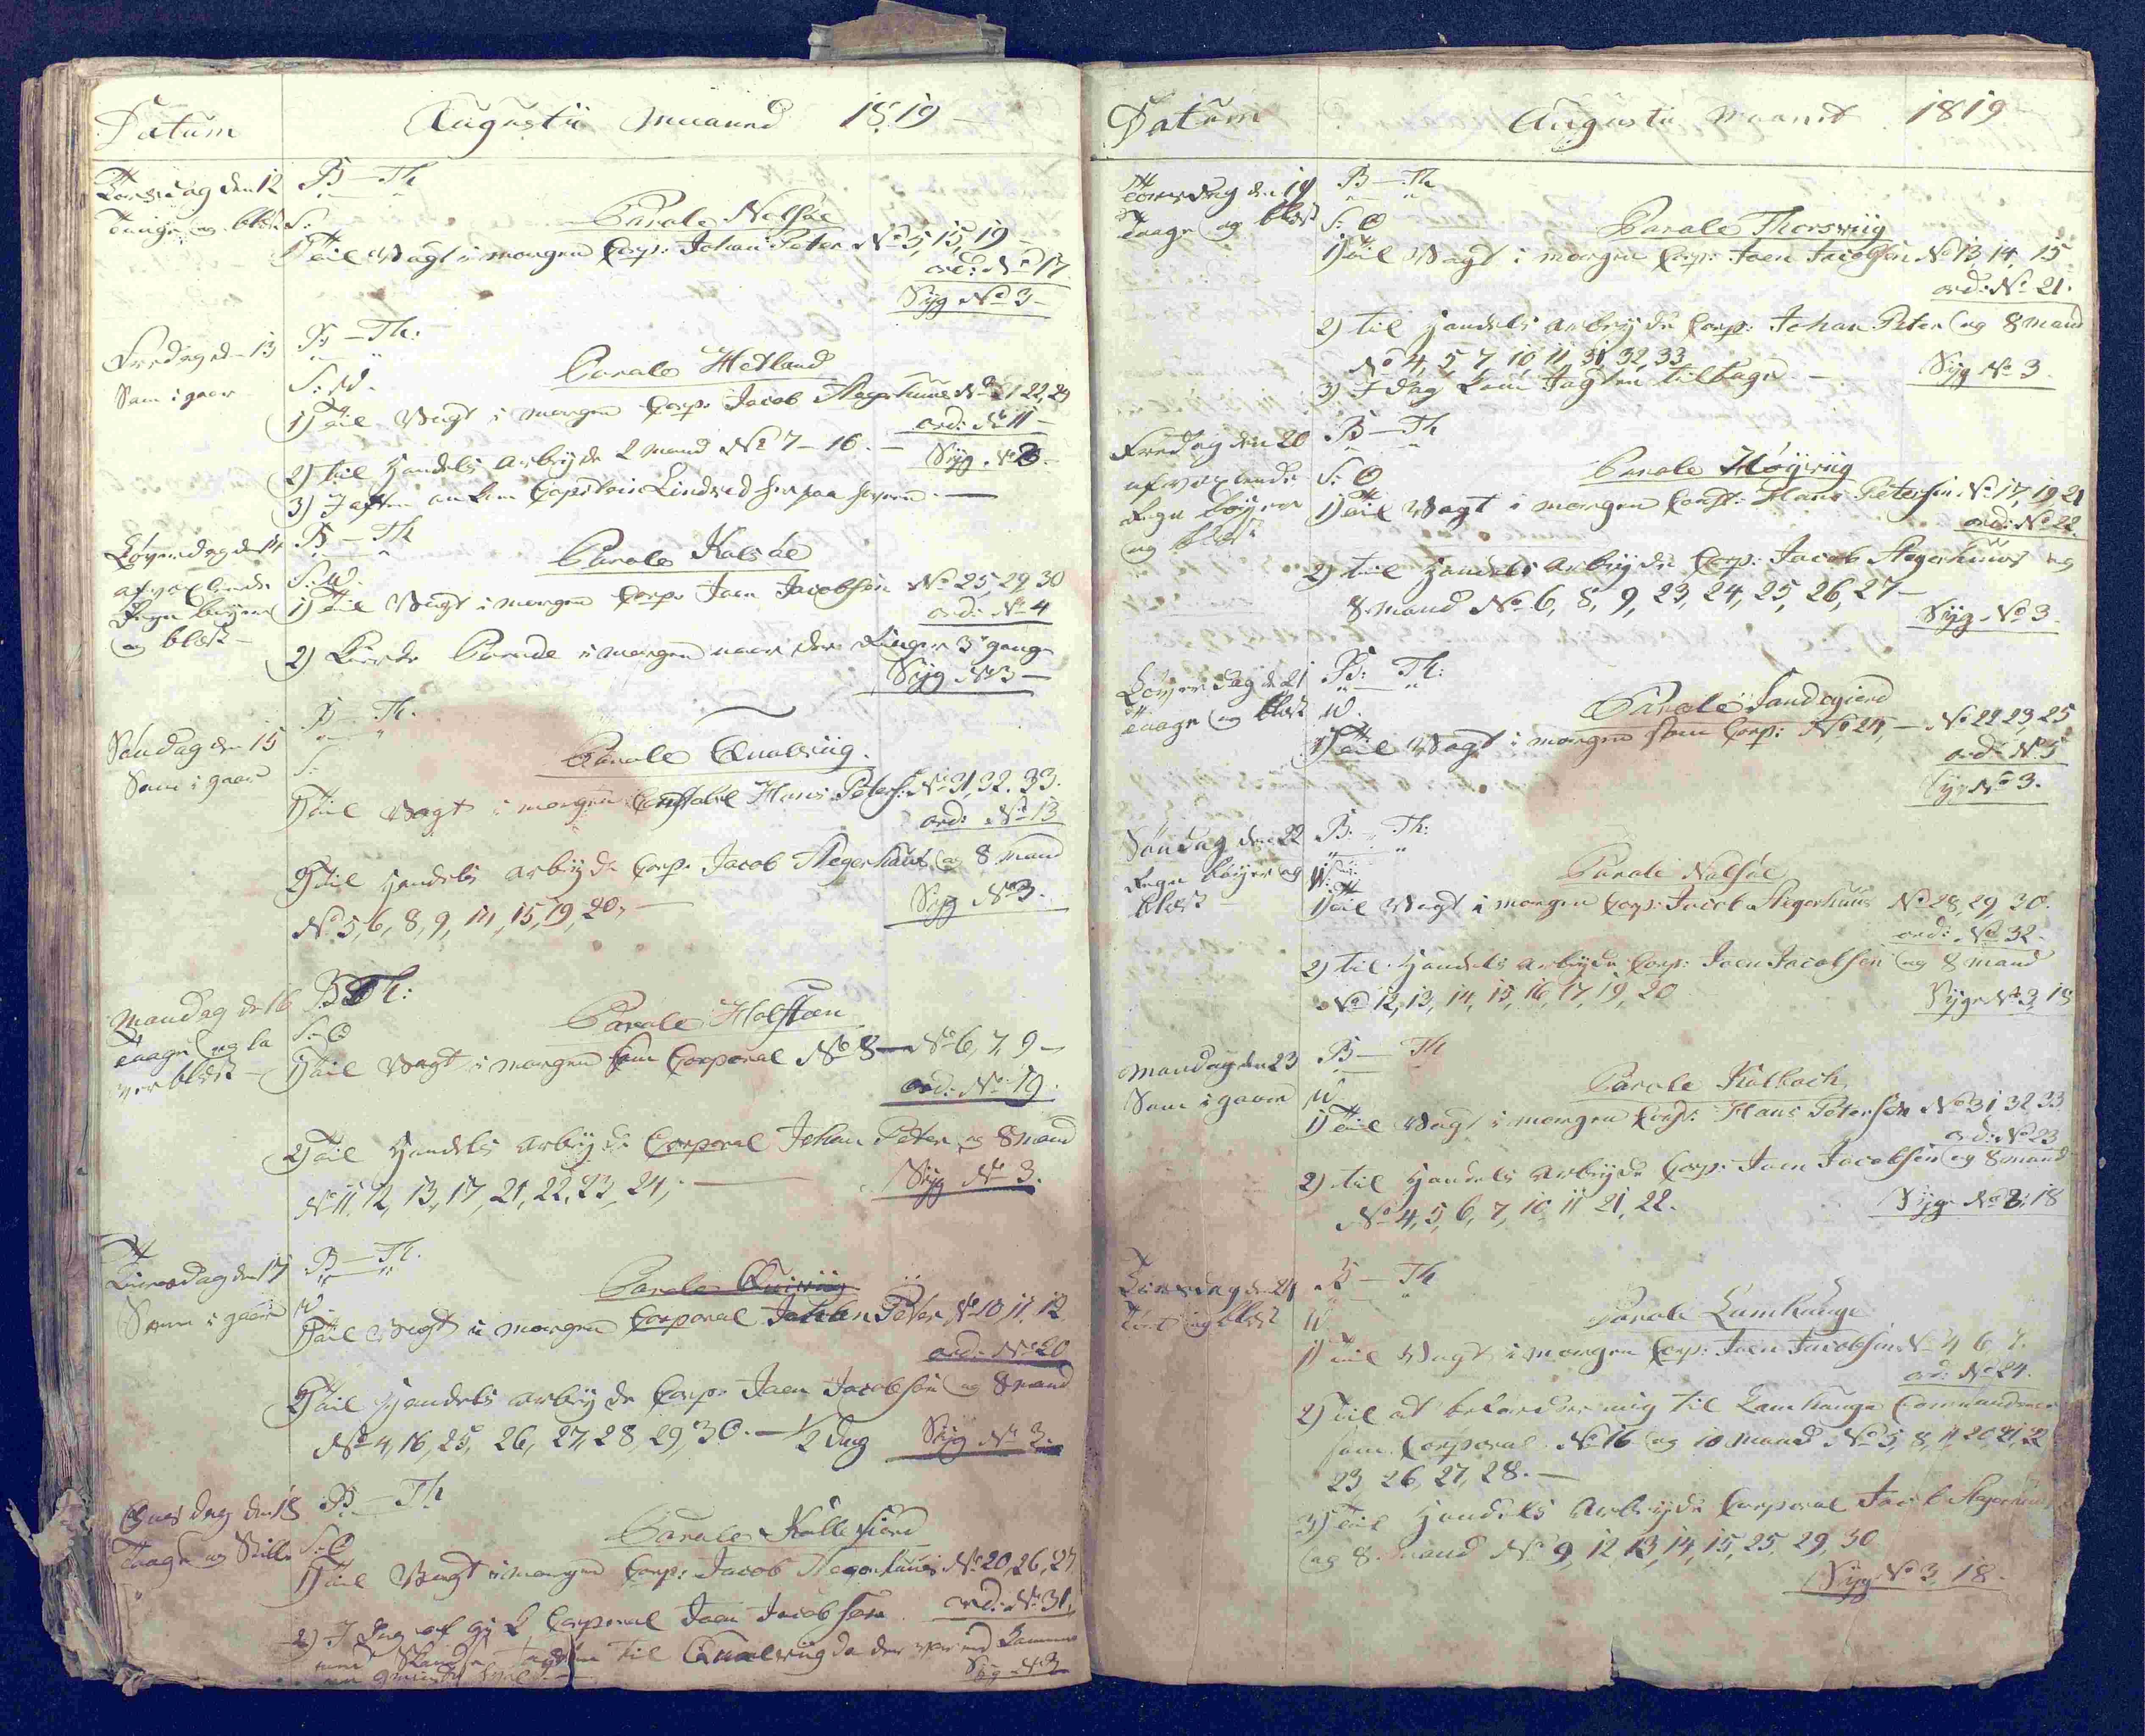 Datum Augustii Maaned 1819
Torsdag den 12 B — Th
Taage og blæst S:
Parole Nolsøe
1) Til Vagt i morgen Corp: Johan Peter No 5, 15, 19
ord: No 17
Syg No 3
Fredag d 13 B — Th:
Som i gaar S: W.
Parole Hetland
1) Til Vagt i morgen Corp: Jacob Stegerhuus No 21 22, 24
ord: No 11
2) til Handels Arbeyde 2 Mand No 7 - 16.
Syg No 3
3) I aften ankom Capitain
Løverdag den 14 B — Th
afvexlende S: W.
Regn byger
og blæst
Parole Kalsøe
1) Til Vagt i morgen Corp: Joen Jacobsen No 25, 29, 30
ord: No 4
2) Kirke Parade i morgen naar der Ringer 3de gang
Syg No 3
Søndag den 15 B — Th.
Som i gaar S:
Parole Qualviig.
1) Til Vagt i morgen Constabel Hans Peters: No 31, 32, 33.
ord: No 13
2) til Handels Arbeyde Corp: Jacob Stegerhuus og 8 Mand
No 5, 6, 8, 9, 14, 15, 19, 20,
Syg No 3.
Mandag d 16 B Th:
Taage og S: O
blæst
Parole Holsten
1) Til Vagt i morgen som Corporal No 8 — No 6, 7, 9
ord: No 19.
2) Til Handels Arbeyde Corporal Johan Peter og 8 Mand
No 11, 12, 13, 17, 21, 22, 23, 24,
Syg No 3.
Tiirsdag den 17 B — Th.
Som i gaar W
Parole Quiviig
1) Til Vagt i morgen Corporal Johan Peter No 10 11, 12
ord: No 20
2) Til Handels Arbeyde Corp: Joen Jacobsen og 8 Mand
No 4, 16, 25, 26, 27, 28, 29, 30. — 1/2 dag Syg No 3.
Onsdag den 18 B — Th
Taage og Stille S: O
Parole Kollefiord
1) Til Vagt i morgen Corp: Jacob Stegerhuus No 20, 26, 27
ord: No 31.
2) I Dag af gik Corporal Joen Jacobsen
til Qualviig da der var ind
Syg No 3
Datum Augustii Maaned 1819
Torsdag den 19 B — Th
Taage og blæst S: O
Parole Thorsviig
1) Til Vagt i morgen Corp: Joen Jacobsen No 13, 14, 15
ord: No 21.
2) til Handels Arbeyde Corp: Johan Peter og 8 mand
No 4, 5, 7, 10 11, 31, 32, 33
Syg No 3.
3) I dag kom Jagten tilbage
Fredag den 20 B — Th
afvexlende S: O
Regn byger
og blæst
Parole Høyviig
1) Til Vagt i morgen Const: Hans Petersen No 17, 19, 21
ord: No 22.
2) til Handels Arbeyde Corp: Jacob Stegerhuus og
8 mand No 6, 8, 9, 23, 24, 25, 26, 27
Syg No 3.
Løverdag d 21 B: — Th:
Taage og blæst W.
Parole Sandagierd
1) Til Vagt i morgen som Corp: No 24, — No 22 23, 25
ord: No 5
Syg No 3.
Søndag den 22 B: — Th:
Regn byger og
blæst
Parole Nolsøe
1) Til Vagt i morgen Corp: Jacob Stegerhuus No 28, 29, 30.
ord: No 32.
2) til Handels Arbeyde Corp: Joen Jacobsen og 8 mand
No 12, 13, 14, 15, 16, 17, 19, 20
Syge No 3, 18
Mandag den 23 B — Th
Som i gaar W
Parole Kalbach
1) Til Vagt i morgen Const: Hans Petersen No 31, 32 33
ord: No 23
2) til Handels Arbeyde Corp: Joen Jacobsen og 8 mand
No 4, 5, 6, 7, 10 11 21, 22.
Syge No 3, 18
Tiirsdag d 24 B — Th
Tørt og blæst W
Parole Lamhauge
1) Til Vagt i morgen Corp: Joen Jacobsen No 4, 6, 7.
ord: No 24.
2) Til at befordre mig til Lamhauge Commanderes
som Corporal No 16 og 10 mand No 5, 8, 11 20, 21, 22
23, 26, 27, 28.
3) Til Handels Arbeyde Corporal Jacob Stegerhuus
og 8 mand No 9, 12, 13, 14, 15, 25, 29, 30
Syg No 3, 18.